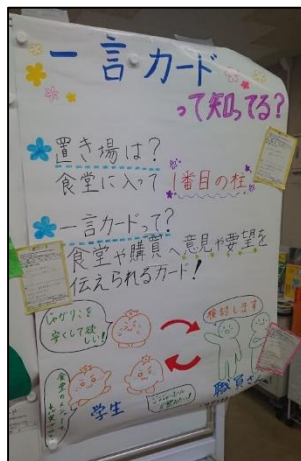 一言カード
って知ってる?
置き場は?
食堂に入って1番目の柱
一言カードって?
食堂や購買へ意見や要望を
伝えられるカード!
じゃがりこを
安くして欲しい!
検討します
学生
職員さん